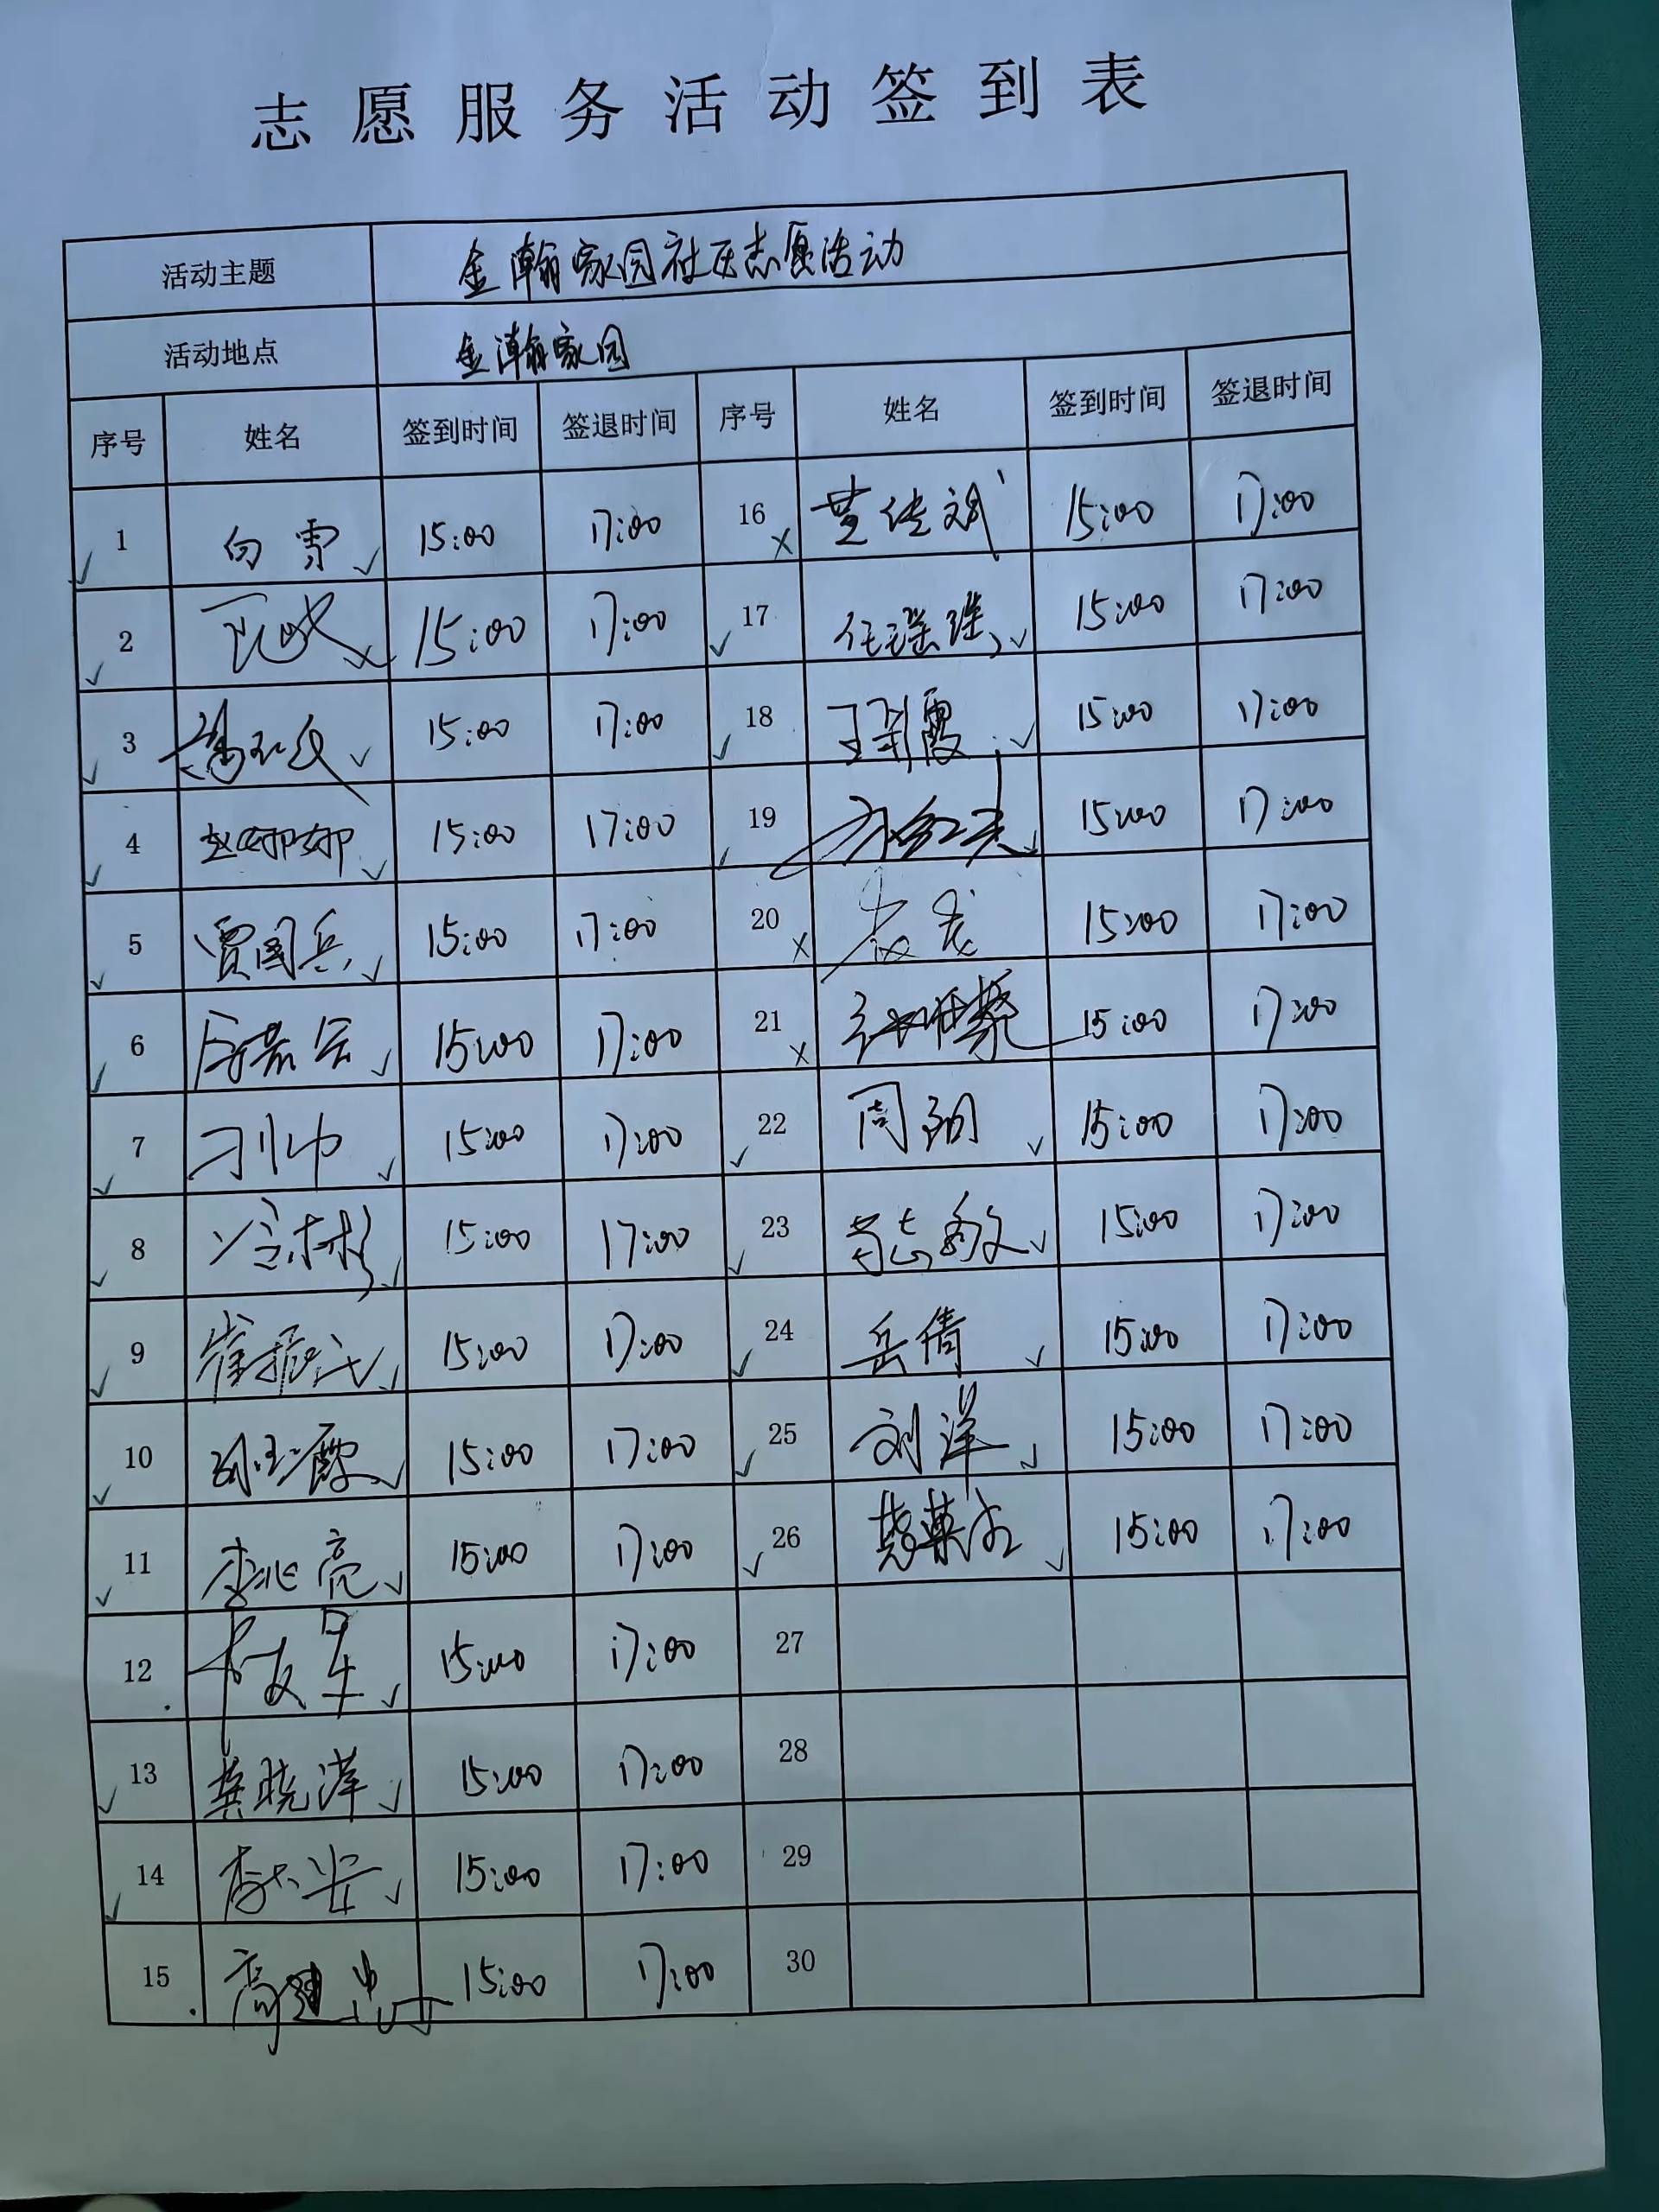 志愿服务活动签到表
活动主题 金瀚家园社区志愿活动
活动地点 金瀚家园
序号 姓名 签到时间 签退时间 序号 姓名 签到时间 签退时间
1 白雪 15:00 17:00 16 15:00 17:00
2 15:00 17:00 17 任瑶瑶 15:00 17:00
3 15:00 17:00 18 王翠霞 15:00 17:00
4 赵娜娜 15:00 17:00 19 15:00 17:00
5 贾国兵 15:00 17:00 20 15:00 17:00
6 15:00 17:00 21 15:00 17:00
7 15:00 17:00 22 周 15:00 17:00
8 冷彬彬 15:00 17:00 23 苟志敏 15:00 17:00
9 崔振 15:00 17:00 24 岳倩 15:00 17:00
10 15:00 17:00 25 刘洋 15:00 17:00
11 李兆亮 15:00 17:00 26 15:00 17:00
12 15:00 17:00 27
13 龚晓洋 15:00 17:00 28
14 李大安 15:00 17:00 29
15 高建忠 15:00 17:00 30